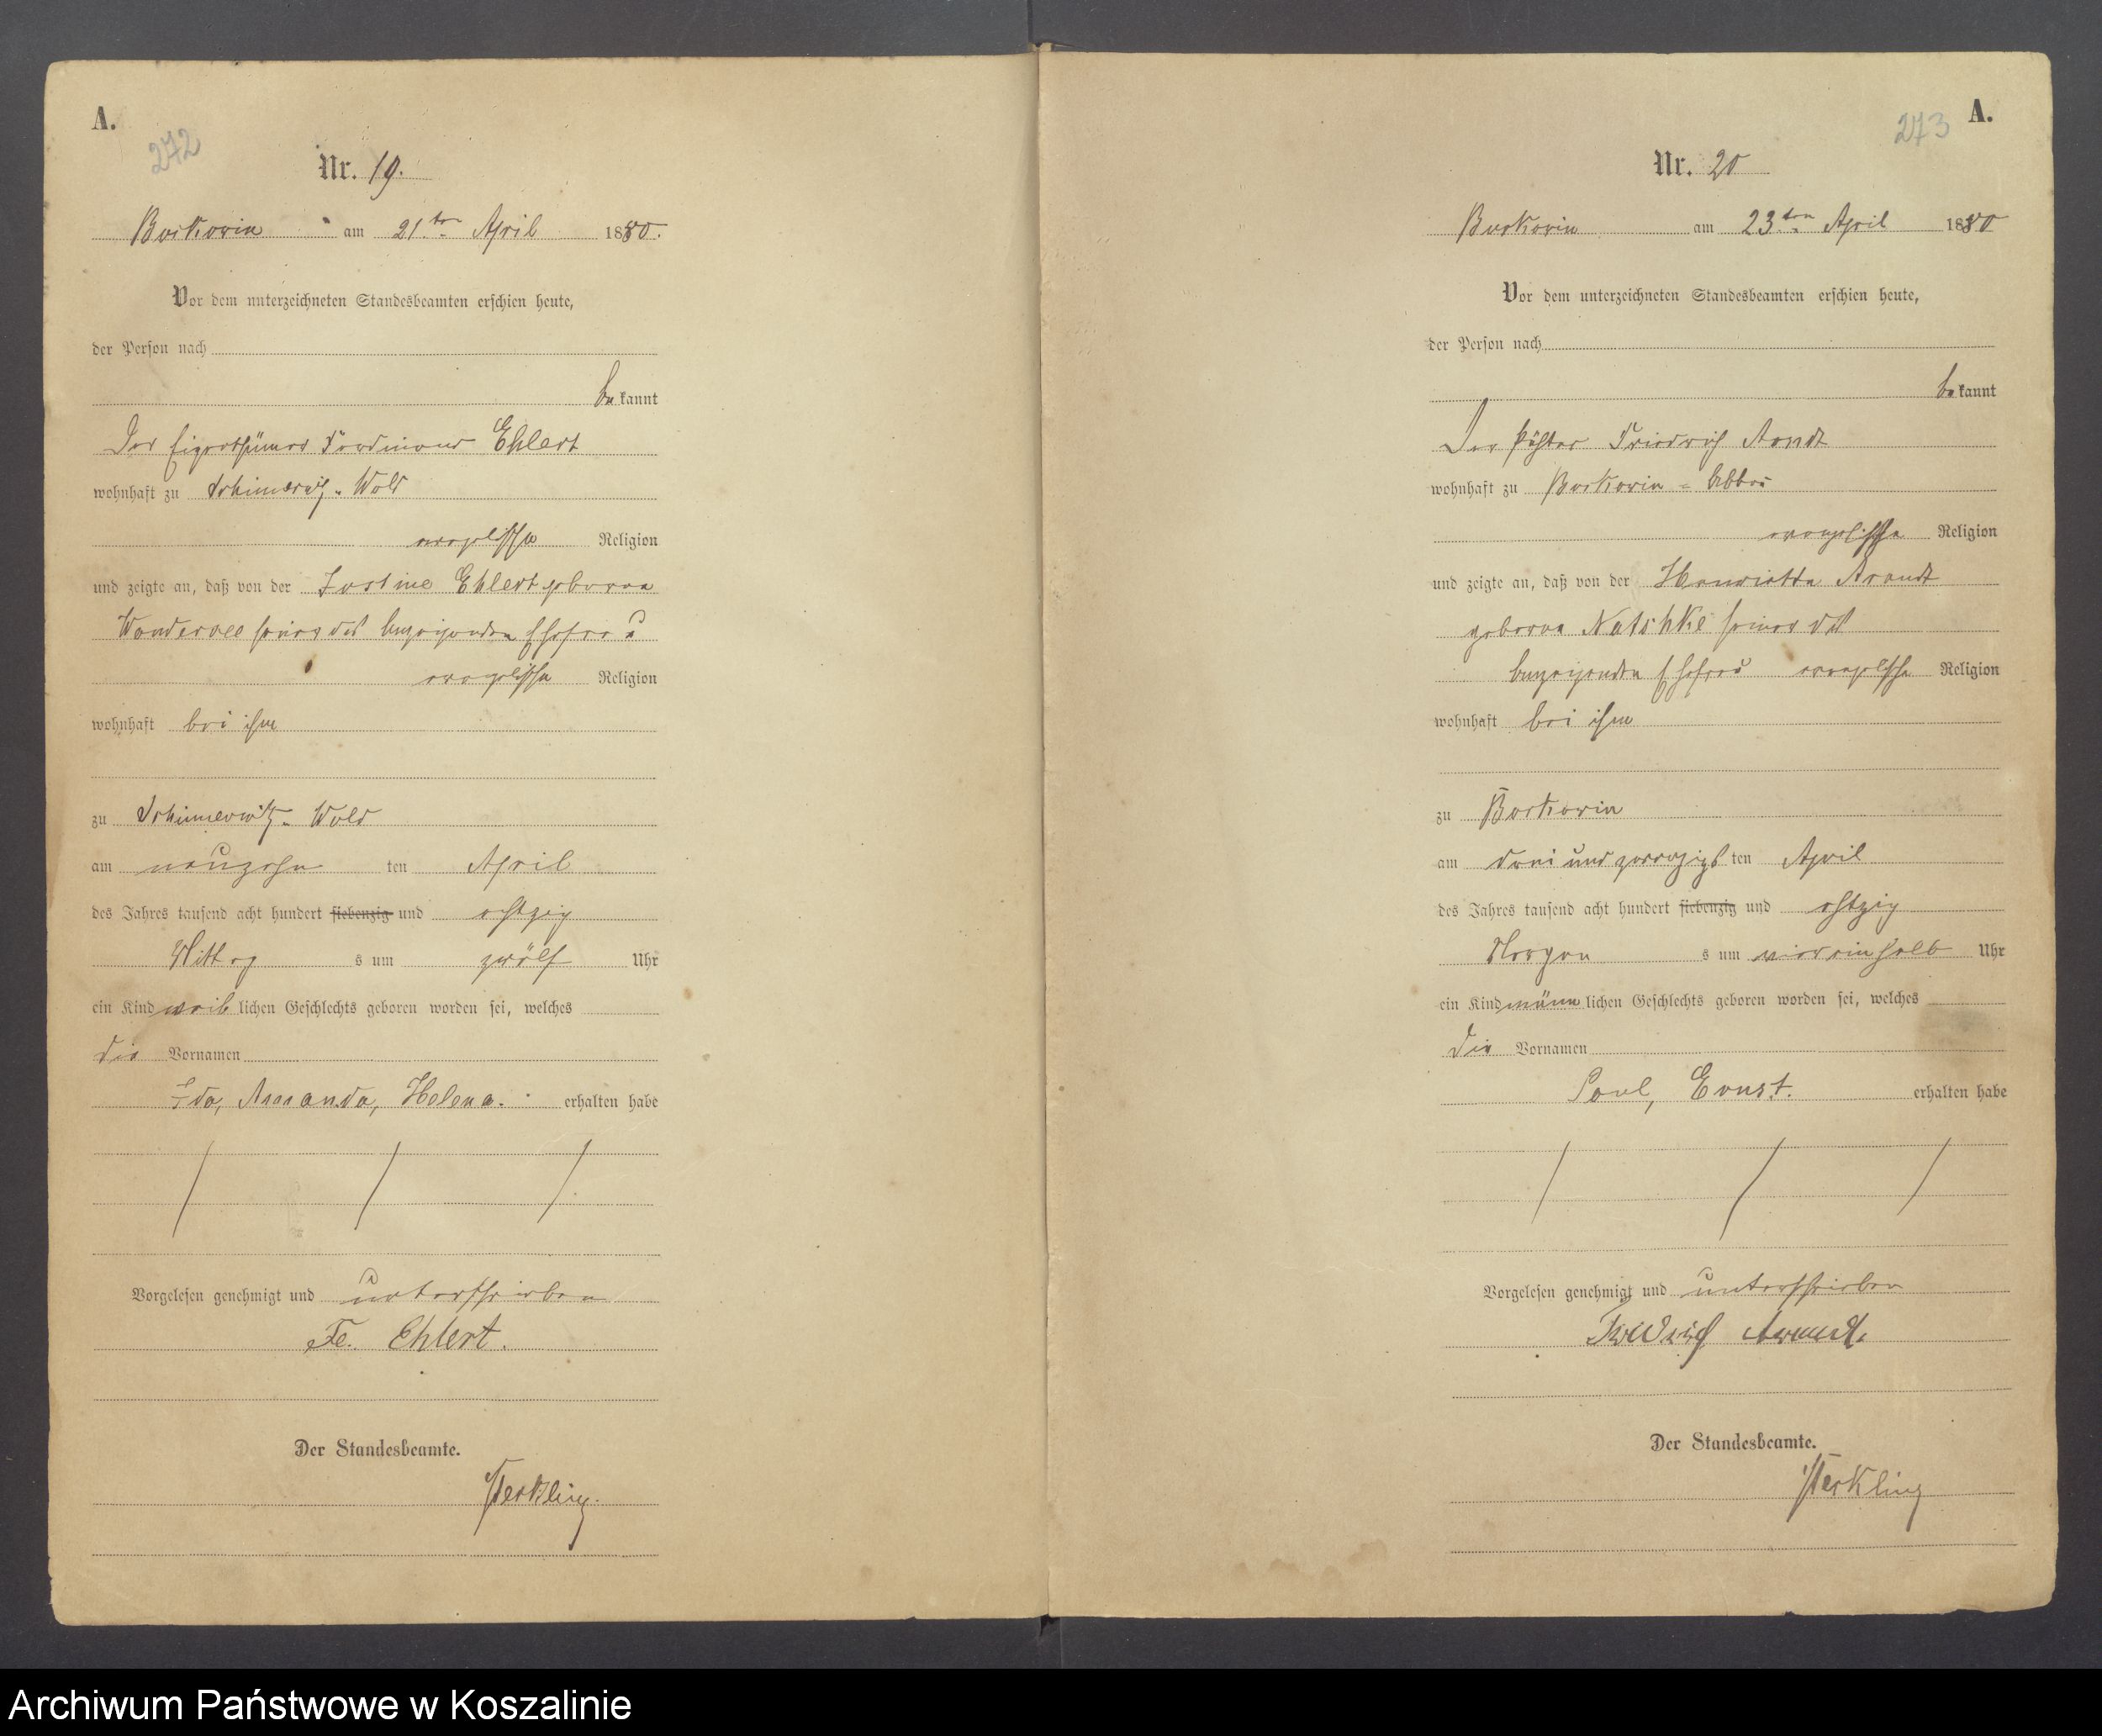 A.
272
Nr. 19.
am 21.ten April 1880.
Vor dem unterzeichneten Standesbeamten erschien heute,
der Person nach
bekannt
Der Eigenthümer Ferdinand Ehlert
wohnhaft zu
evangelischer Religion
und zeigte an, daß von der Justine Ehlert geborne
seiner des Anzeigenden Ehefrau
evangelischer Religion
wohnhaft bei ihm
zu
am neunzehn ten April
des Jahres tausend acht hundert siebenzig und achtzig
Mittag s um zwölf Uhr
ein Kind weiblichen Geschlechts geboren worden sei, welches
die Vornamen
Ida, Amanda, Helena. erhalten habe
Vorgelesen genehmigt und unterschrieben
Fe. Ehlert.
Der Standesbeamte.
A.
273
Nr. 20
am 23.ten April 1880
Vor dem unterzeichneten Standesbeamten erschien heute,
der Person nach
bekannt
Der Pächter Friedrich Arndt
wohnhaft zu
evangelischer Religion
und zeigte an, daß von der Henriette Arndt
geborne Natshke seiner des
Anzeigenden Ehefrau evangelischer Religion
wohnhaft bei ihm
zu
am drei und zwanzigs ten April
des Jahres tausend acht hundert siebenzig und achtzig
Morgen s um vier ein halb Uhr
ein Kind männlichen Geschlechts geboren worden sei, welches
die Vornamen
Paul, Ernst. erhalten habe
Vorgelesen genehmigt und unterschrieben
Friedrich Arndt.
Der Standesbeamte.
Archiwum Państwowe w Koszalinie